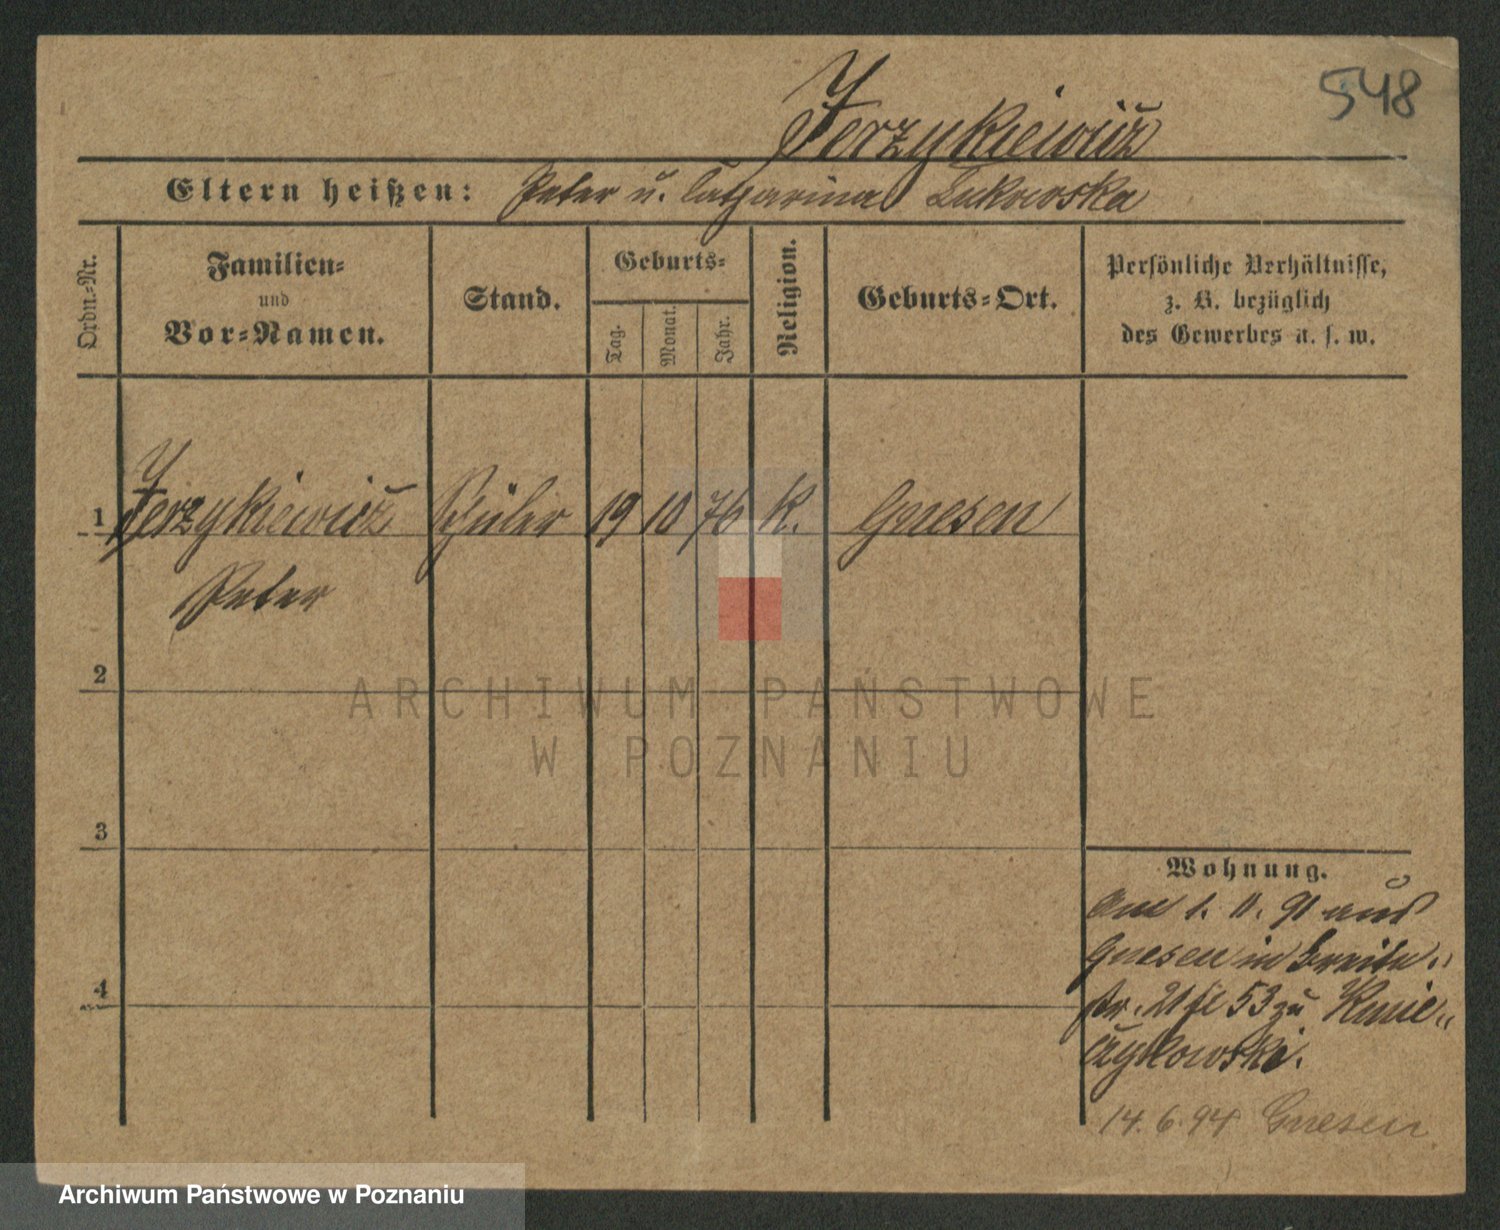 548
Jerzykiewicz
Eltern heißen: Peter u. Catharina Lukowska
Ordn.-Nr.
Familien-
und
Vor-Namen.
Stand.
Geburts-
Tag.
Monat.
Jahr.
Religion.
Geburts-Ort.
Persönliche Verhältnisse,
z. B. bezüglich
des Gewerbes u. s. w.
1 Jerzykiewicz Schüler 19 10 76 K. Gnesen
Peter
2
3
4
Wohnung.
Am 1. 11. 91 aus
Gnesen in Breite-
str. 21 53 zu
14.6.94 Gnesen
ARCHIWUM PAŃSTWOWE
W POZNANIU
Archiwum Państwowe w Poznaniu